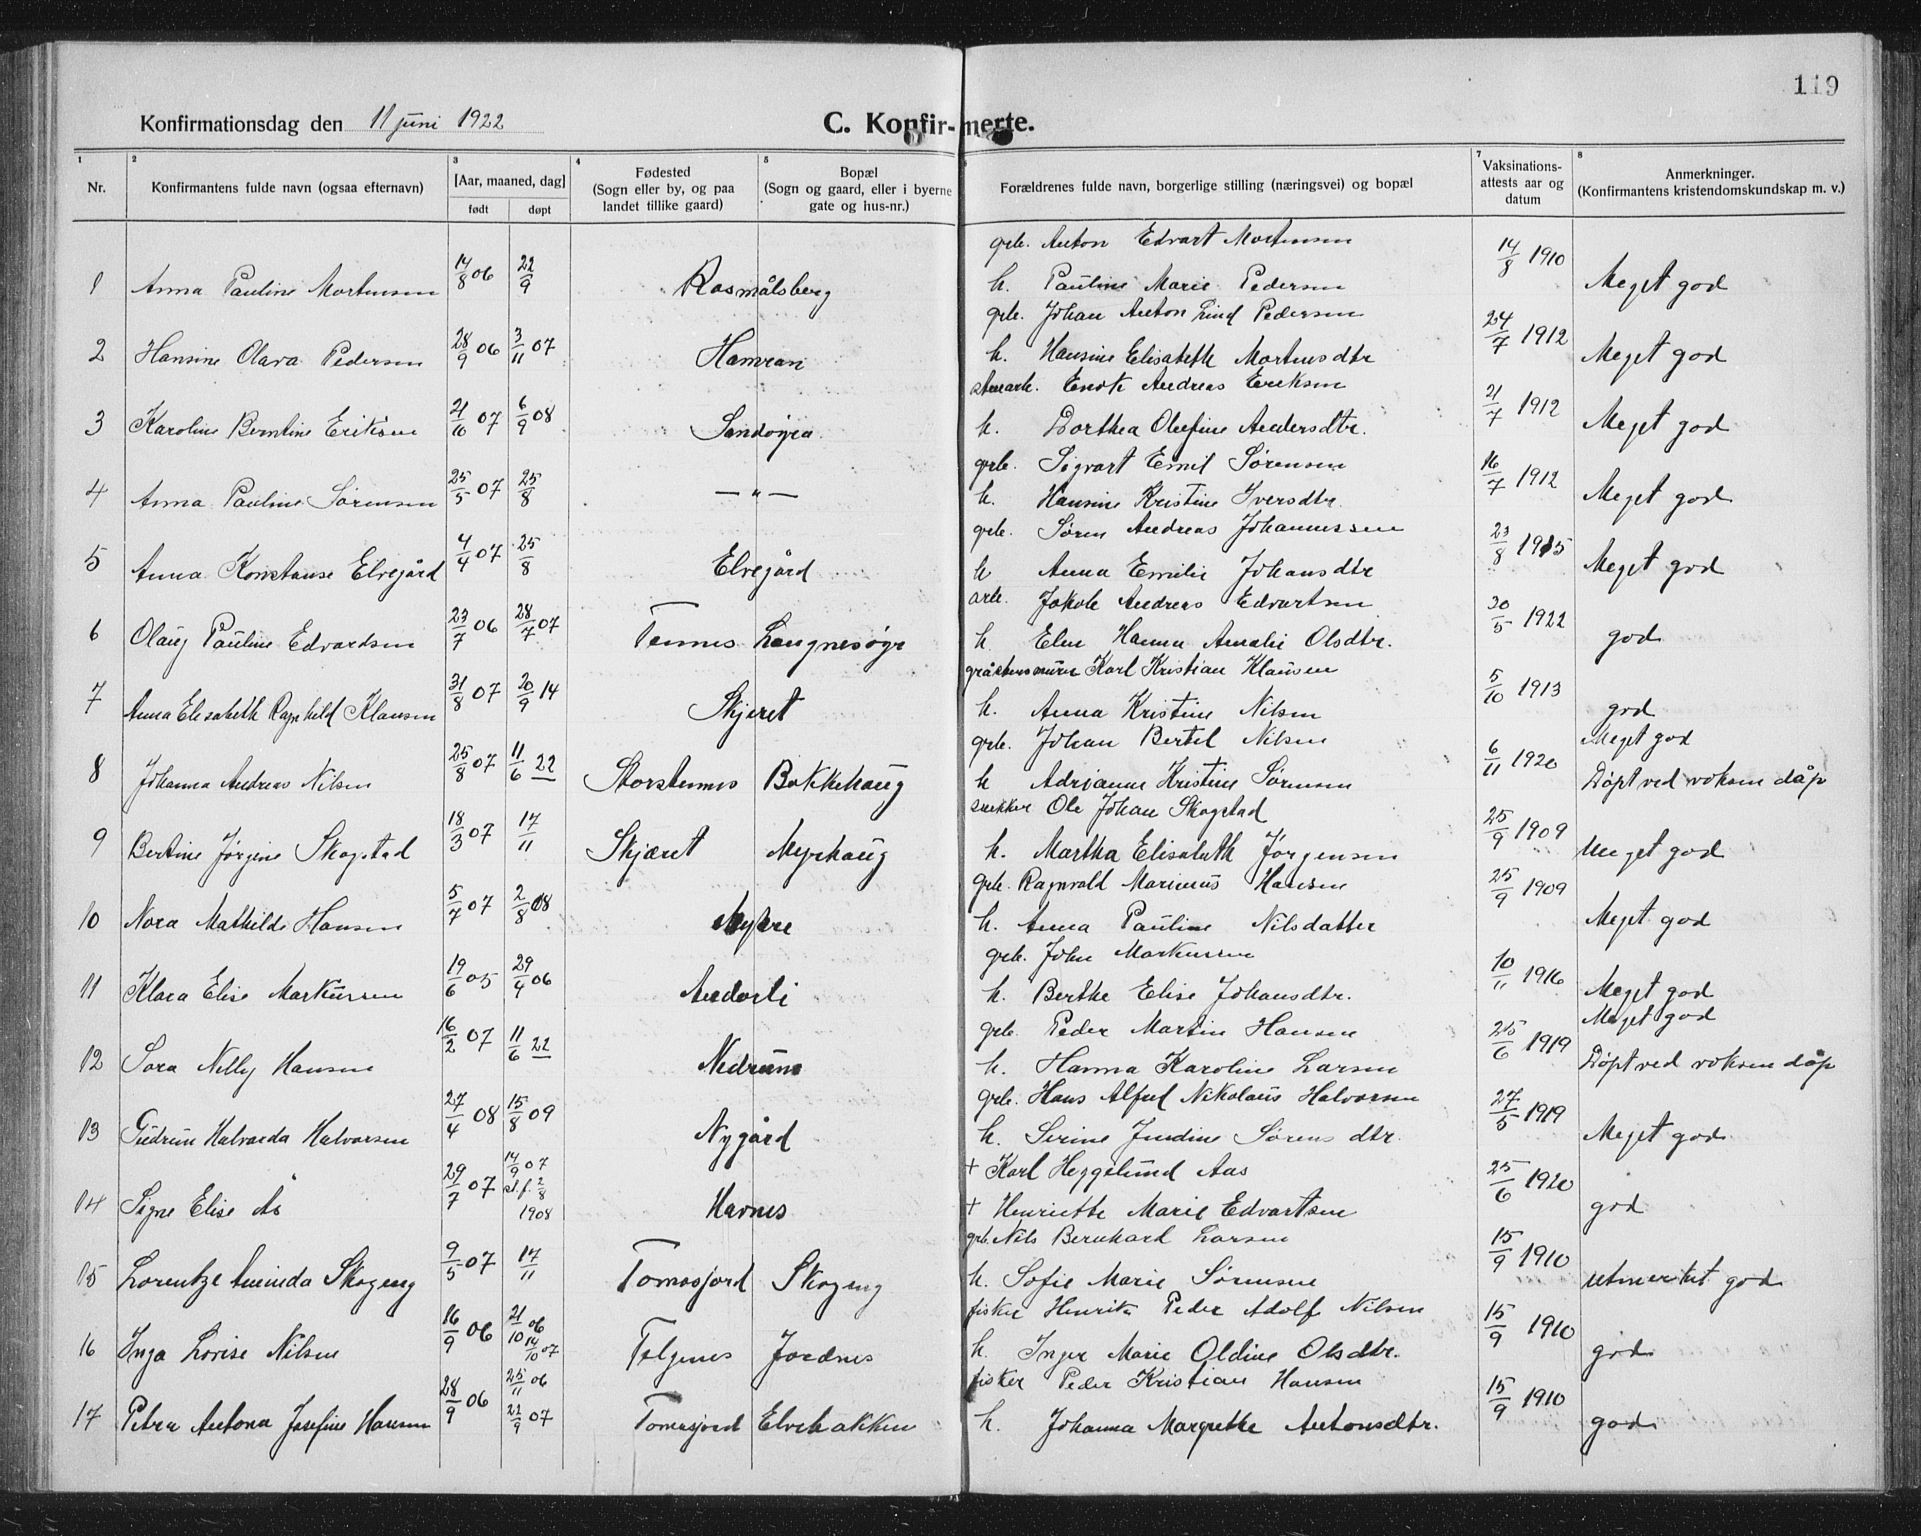 119
Konfirmationsdag den 11 juni 1922 C. Konfir-merte.
1 2 3 4 5 7 8
Nr. Konfirmantens fulde navn (ogsaa efternavn) [Aar, maaned, dag] født døpt Fødested (Sogn eller by, og paa landet tillike gaard) Bopæl (Sogn og gaard, eller i byerne gate og hus-nr.) Forældrenes fulde navn, borgerlige stilling (næringsvei) og bopæl Vaksinations-attests aar og datum Anmerkninger. (Konfirmantens kristendomskundskap m. v.)
grb. Anton Edvart Mortensen
1 Anna Pauline Mortensen 14/8 06 22/9 Rasmålsberg h. Pauline Marie Pedersen 14/8 1910 Meget god
grb. Johan Anton Lind Pedersen
2 Hansine Olava Pedersen 28/9 06 3/11 07 Hamran h. Hansine Elisabeth Mortensdtr 24/7 1912 Meget god
Endt Andreas Eriksen
3 Karoline Berntine Eriksen 21/10 07 6/9 08 Sandøyra h. Dorthea Olufine Andersdtr. 21/7 1912 Meget god
grb. Sigvart Emil Sørensen
4 Anna Pauline Sørensen 25/5 07 25/8 — " — h. Hansine Kristine Iversdtr. 16/7 1912 Meget god
grb. Søren Andreas Johannessen
5 Anna Konstanse Elvegård 4/4 07 25/8 Elvegård h Anna Emilie Johansdtr 23/8 1915 Meget god
arb. Jakob Andreas Edvartsen
6 Olaug Pauline Edvardsen 23/7 06 28/7 07 Tennes Langnesøyr h. Elen Hanna Amalie Olsdtr. 30/5 1922 god
gråstensmurer Karl Kristian Klausen
7 Anna Elisabeth Ragnhild Klausen 31/8 07 20/9 14 Skjeret h. Anna Kristine Nilsen 5/10 1913 god
grb. Johan Bertel Nilsen Meget god
8 Johanna Andreas Nilsen 25/8 07 11/6 22 Storstennes Bakkehaug h Adrianna Kristine Sørensen 6/11 1920 Døpt ved voksen dåp
snekker Ole Johan Skogstad
9 Bertine Jørgine Skogstad 18/3 07 17/11 Skjæret Myrhaug h. Martha Elisabeth Jørgensen 25/9 1909 Meget god
grb. Ragnvald Marinius Hansen
10 Nora Mathilde Hansen 5/7 07 2/8 08 Mykre h. Anna Pauline Nilsdatter 25/9 1909 Meget god
grb. John Markussen
11 Klara Elise Markussen 19/6 05 29/4 06 Andorli h. Berthe Elise Johansdtr. 10/11 1916 Meget god
grb. Peder Martin Hansen Meget god
12 Sara Nelly Hansen 16/2 07 11/6 22 Nedrum h. Hanna Karoline Larsen 25/6 1919 Døpt ved voksen dåp
grb. Hans Alfred Nikolaus Halvorsen
13 Gudrun Halvarda Halvorsen 27/4 08 15/8 09 Nygård h. Serine Jendine Sørens dtr. 27/5 1919 Meget god
+ Karl Heggelund Aas
14 Signe Elise Ås 29/7 07 14/9 07 st.f. 2/8 1908 Havnes + Henriette Marie Edvartsen 25/6 1920 god
grb. Nils Bernhard Larsen
15 Lorentze Aminda Skogeng 9/5 07 17/11 Tomasjord Skogeng h. Sofie Marie Sørensen 15/9 1910 utmerket god
fisker Henrik Peder Adolf Nilsen
16 Inga Lovise Nilsen 16/9 06 21/10 06 14/10 07 Selgenes Jordnes h. Inger Marie Oldine Olsdtr. 15/9 1910 god
fisker Peder Kristian Hansen
17 Petra Antona Josefine Hansen 28/9 06 25/11 06 22/9 07 Tomasjord Elvebakken h. Johanna Margrethe Antonsdtr. 15/9 1910 god